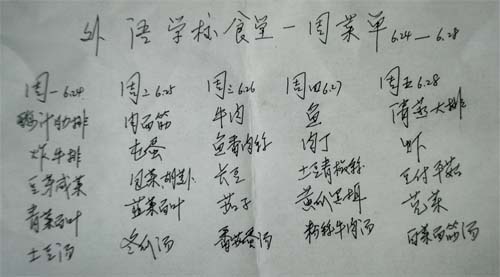 外语学校食堂一周菜单 6.24—6.28
周一6.24 周二6.25 周三6.26 周四6.27 周五6.28
汁肋排 肉面筋 牛肉 鱼 清蒸大排
炸牛排 蛋 鱼香肉丝 肉丁 虾
豆芽咸菜 长豆 土豆青椒丝 平菇
青菜百叶 韭菜百叶 茄子 黄瓜黑木耳 苋菜
土豆汤 冬瓜汤 番茄蛋汤 粉丝牛肉汤 白菜面筋汤